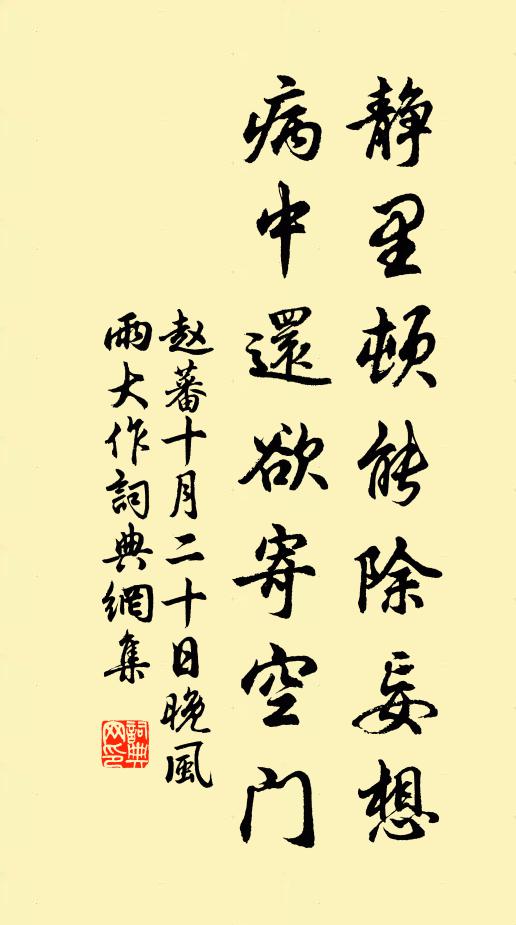 静里顿能除妄想
病中還欲寄空门
赵蕃十月二十日晚風
雨大作詞典網集
詞典
网印